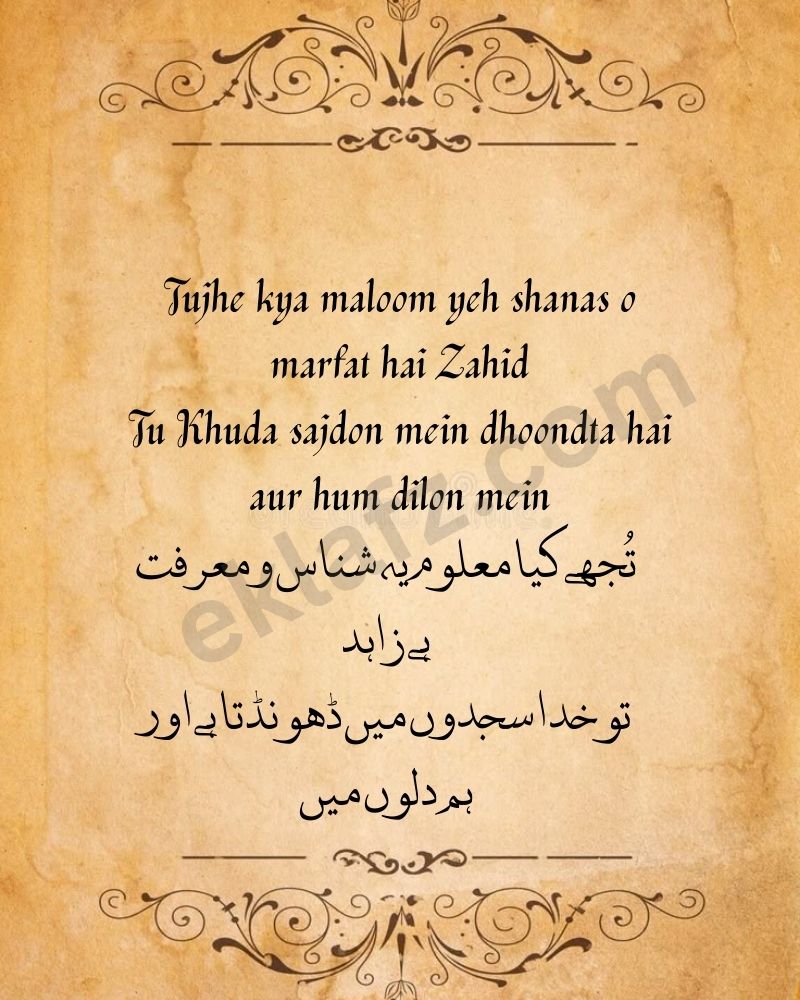 Tujhe kya maloom yeh shanas o
marfat hai Zahid
Tu Khuda sajdon mein dhoondta hai
aur hum dilon mein
تُجھے کیا معلوم یہ شناس و معرفت
ہے زاہد
تو خدا سجدوں میں ڈھونڈتا ہے اور
ہم دلوں میں
eklafz.com